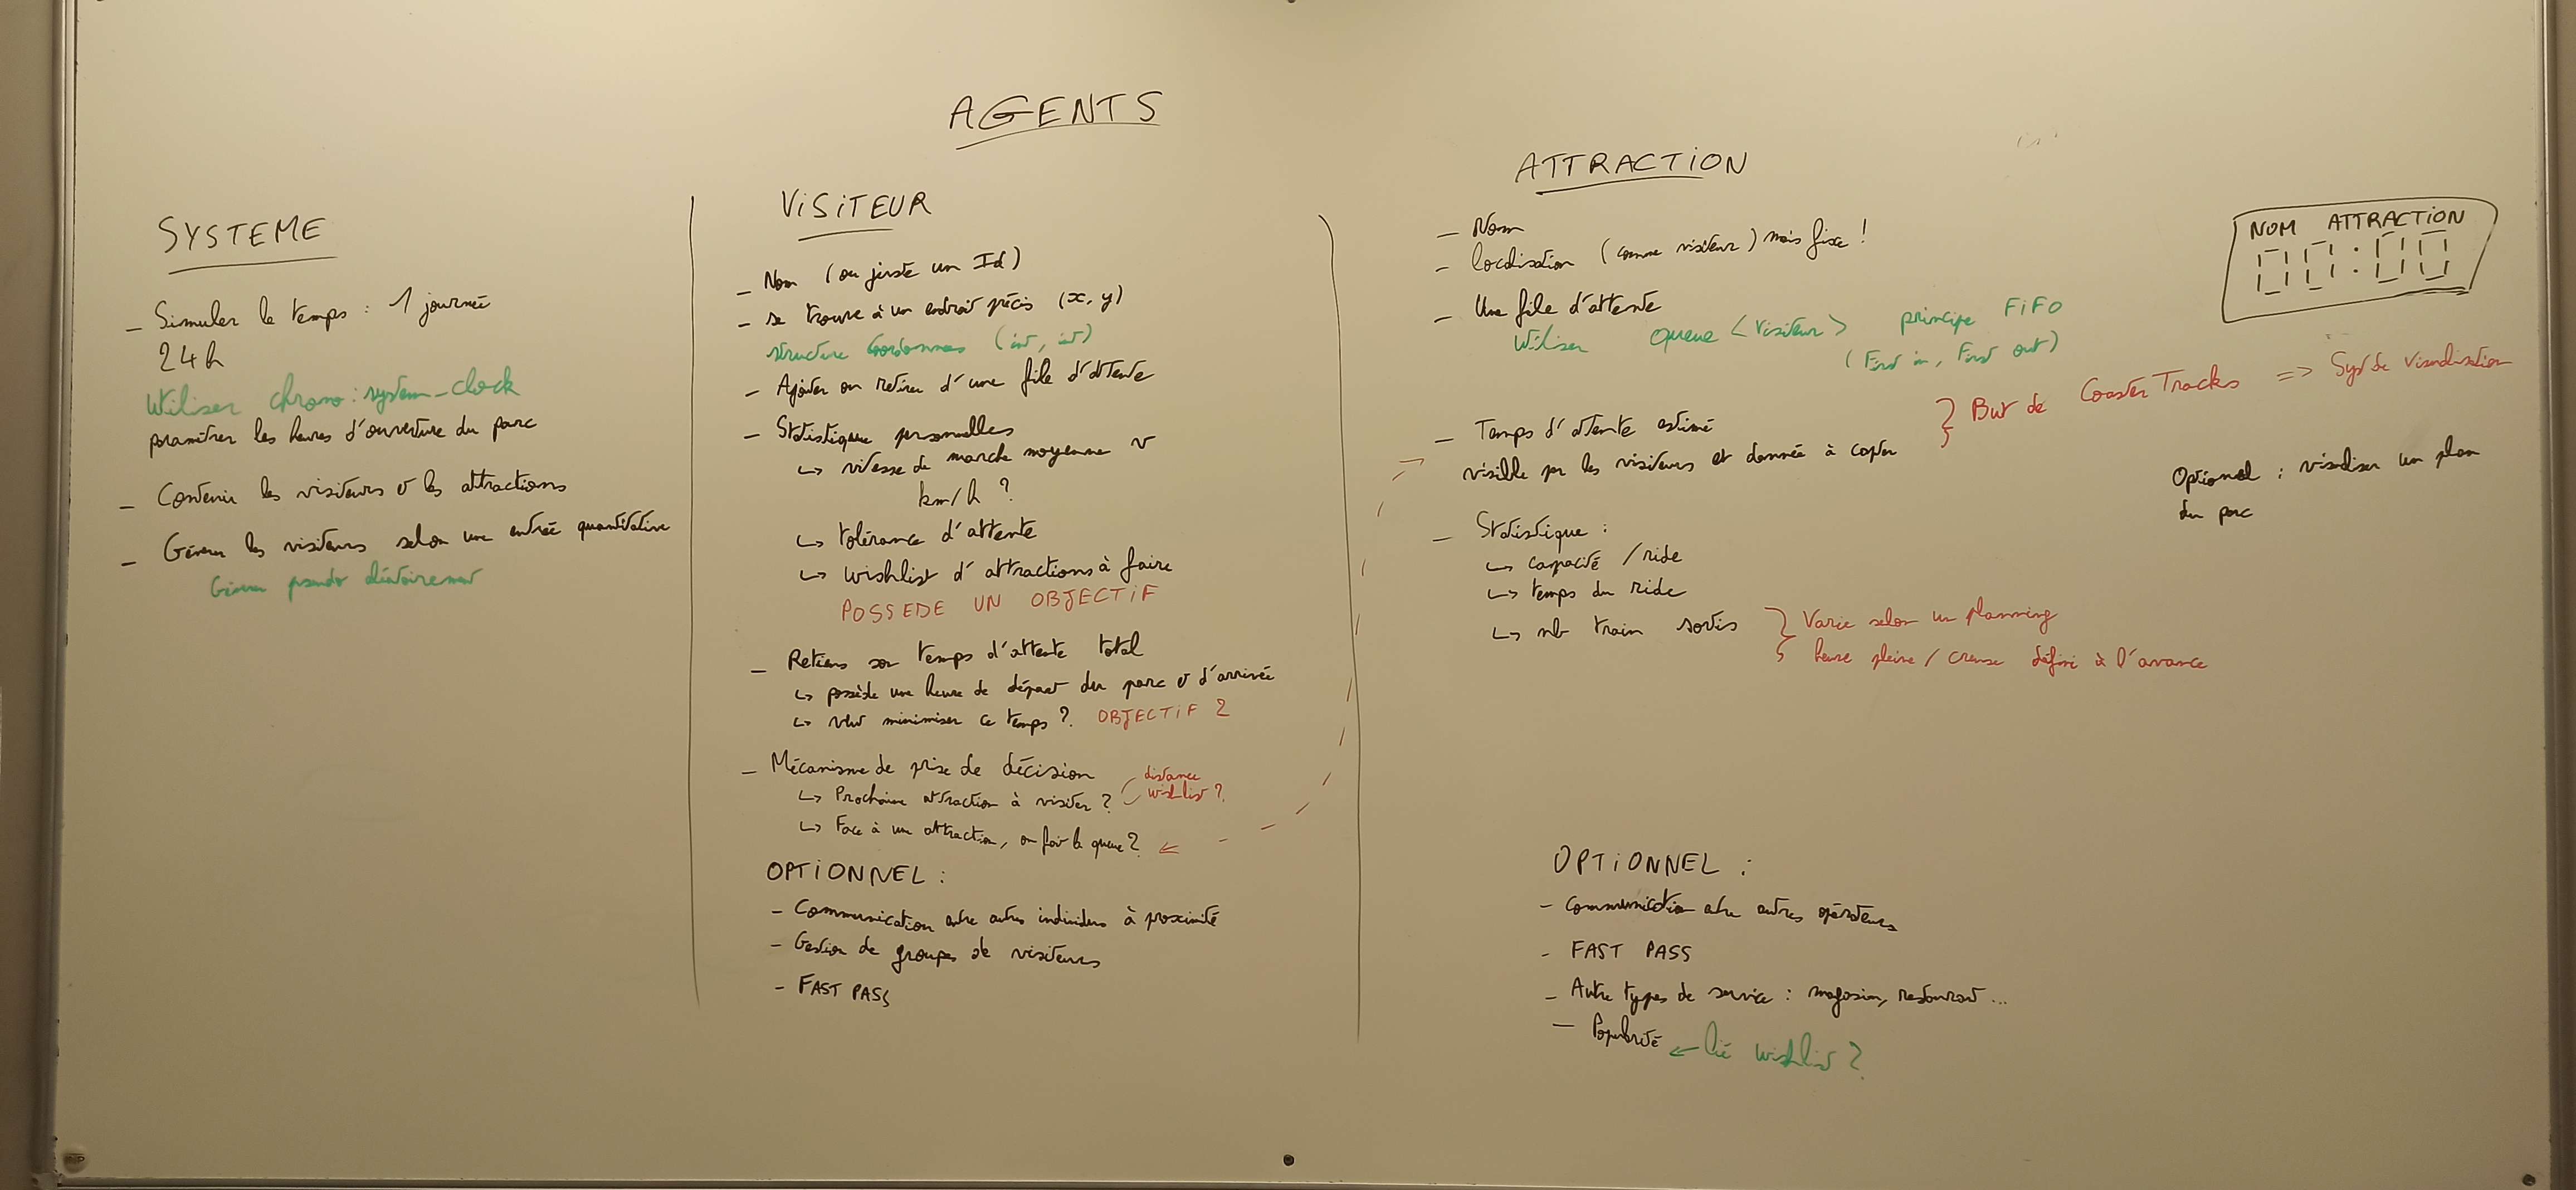 AGENTS
SYSTEME
- Simuler le temps : 1 journée
24h
Utiliser chrono::system_clock
paramétrer les heures d'ouverture du parc
- Contenir les visiteurs & les attractions
- Générer les visiteurs selon une entrée quantitative
Générer pseudo aléatoirement
VISITEUR
- Nom (ou juste un Id)
- se trouve à un endroit précis (x, y)
structure Coordonnées (int, int)
- Ajouter ou retirer d'une file d'attente
- Statistiques personnelles
↳ vitesse de marche moyenne v
km/h ?
↳ tolérance d'attente
↳ wishlist d'attractions à faire
POSSEDE UN OBJECTIF
- Retiens son temps d'attente total
↳ possède une heure de départ du parc & d'arrivée
↳ veut minimiser ce temps ? OBJECTIF 2
- Mécanisme de prise de décision
↳ Prochaine attraction à visiter ? distance
wishlist ?
↳ Face à une attraction, on fait la queue ?
OPTIONNEL :
- Communication entre autres individus à proximité
- Gestion de groupes de visiteurs
- FAST PASS
ATTRACTION
- Nom
- Localisation (comme visiteur) mais fixe !
- Une file d'attente
Utiliser Queue <Visiteur> principe FiFO
(First in, First out)
- Temps d'attente estimé
visible par les visiteurs et donnée à capter
} But de CoasterTracks => Syst de Visualisation
- Statistique :
↳ capacité / ride
↳ temps du ride
↳ nb train sortis } Varie selon un planning
heure pleine / creuse défini à l'avance
OPTIONNEL :
- Communication entre autres opérateurs
- FAST PASS
- Autre types de service : magasin, restaurant ...
- Popularité ← lié wishlist ?
NOM ATTRACTION
00:00
Optionnel : visualiser un plan
du parc